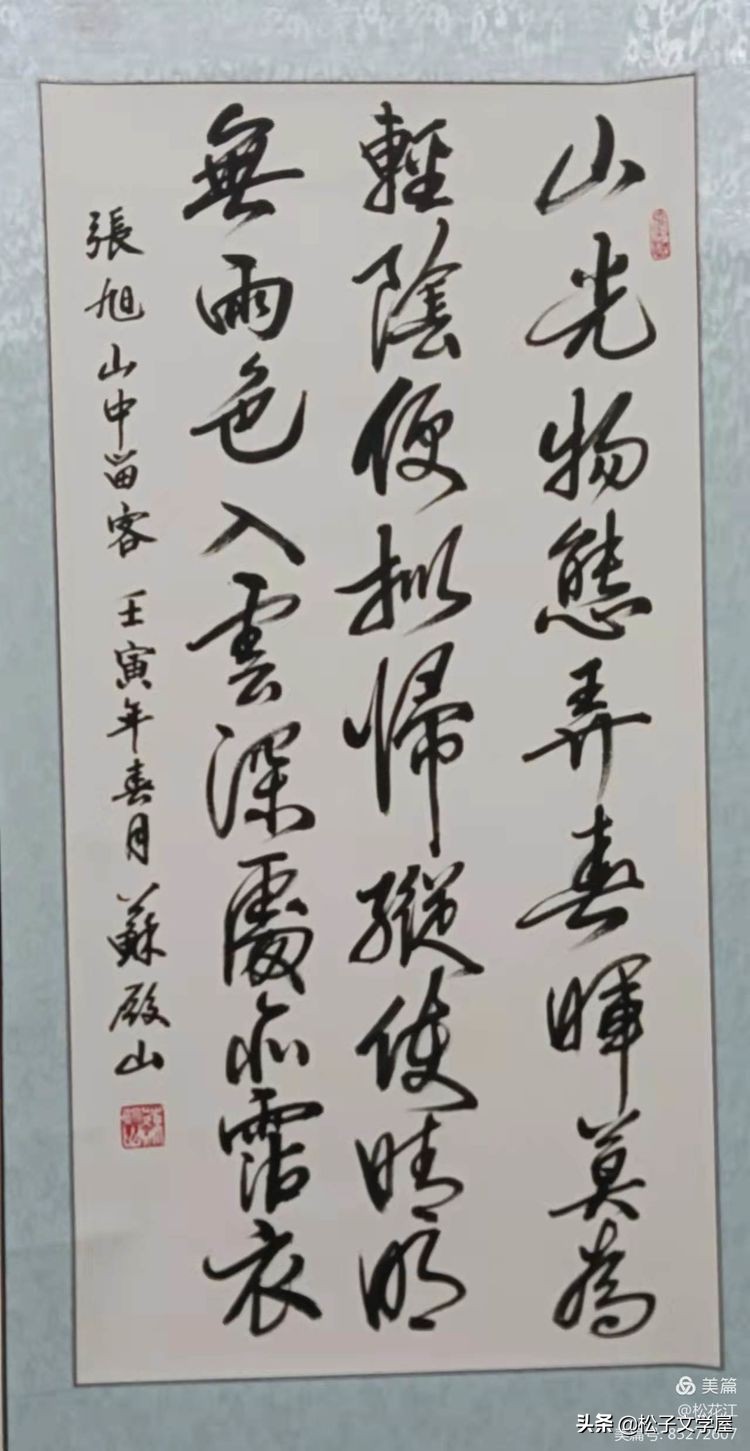 山光物態弄春暉莫為
輕陰便擬歸縱使晴明
無雨色入雲深處亦霑衣
張旭山中留客 壬寅年春月 蘇殿山
美篇
@松花江
美篇号: 85272007
头条 @松子文学屋